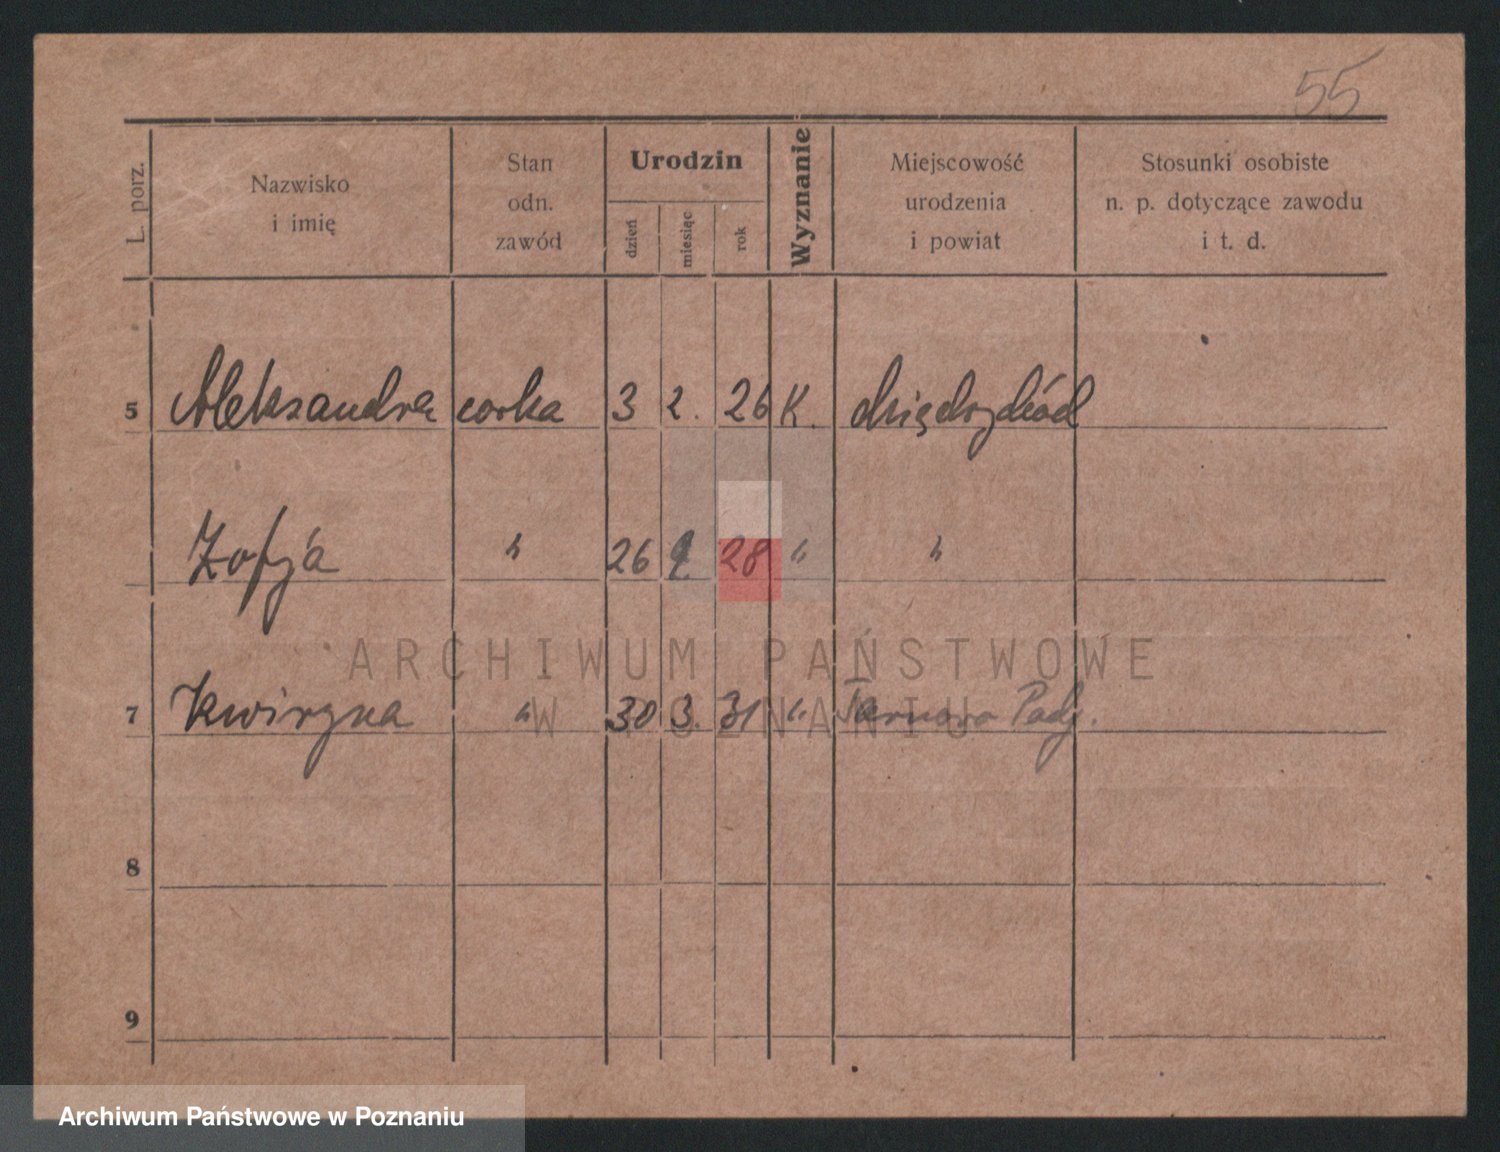 55
L. porz. Nazwisko i imię Stan odn. zawód Urodzin dzień miesiąc rok Wyznanie Miejscowość urodzenia i powiat Stosunki osobiste n. p. dotyczące zawodu i t. d.
5 Aleksandra corka 3 2. 26 K. Międzychód
Zofja " 26 28 " "
ARCHIWUM PAŃSTWOWE
W POZNANIU
7 " 30 3. 31 " Tarnowo Podg.
8
9
Archiwum Państwowe w Poznaniu